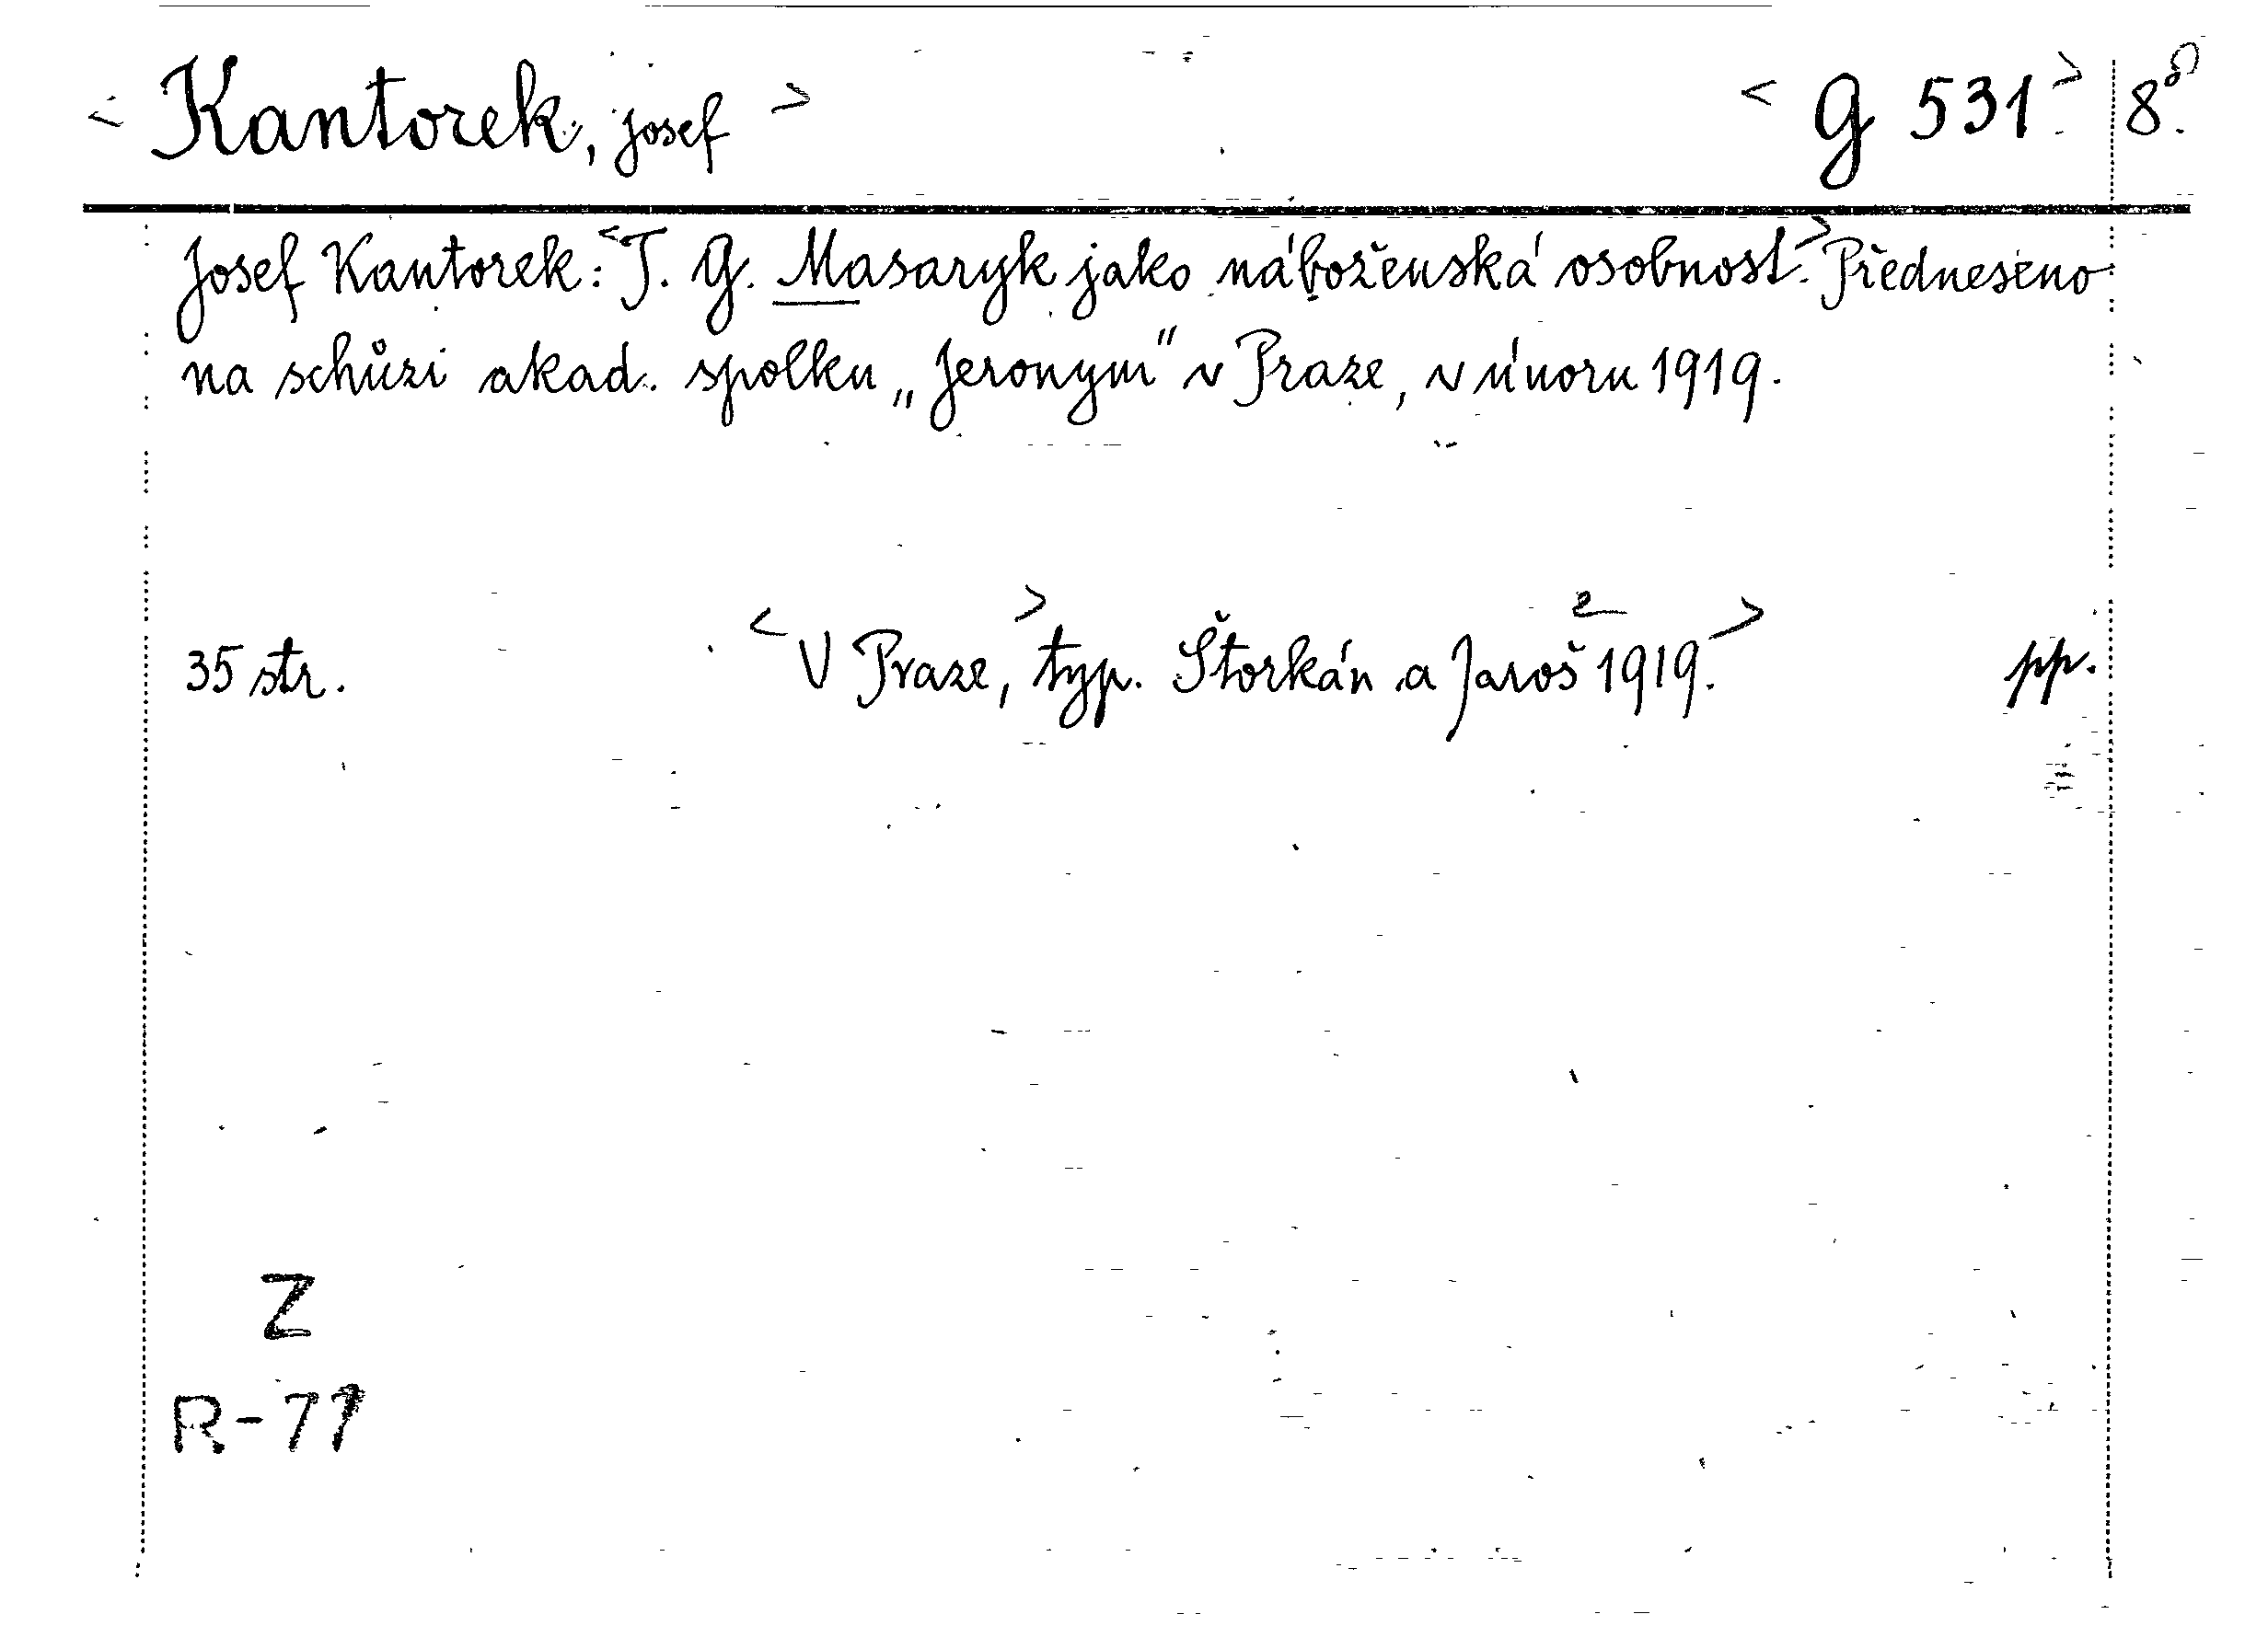 < Kantorek, Josef > < G 531 > 8°.
Josef Kantorek: <T. G. Masaryk jako náboženská osobnost.> Předneseno
na schůzi akad. spolku „Jeronym“ v Praze, v únoru 1919.
35 str. < V Praze, > typ. Štorkán a Jaroš 1919. > pp.
Z
R-77